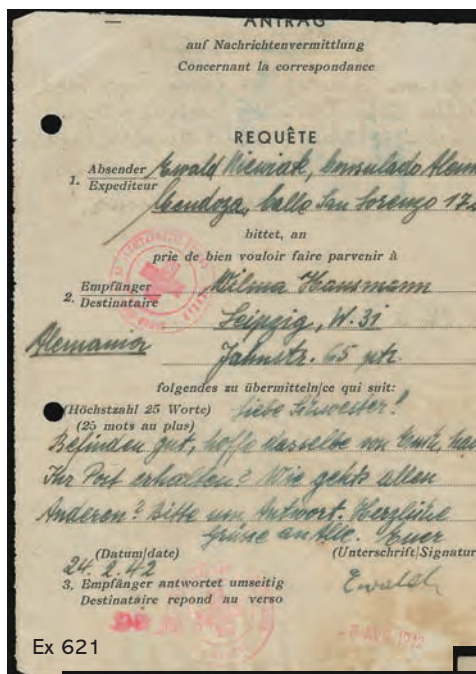 ANTRAG
auf Nachrichtenvermittlung
Concernant la correspondance
REQUÊTE
1. Absender Ewald Niewiak, Consulado Alem
Expediteur Mendoza, Calle San Lorenzo 17
bittet, an
prie de bien vouloir faire parvenir à
2. Empfänger Wilma Hausmann
Destinataire Leipzig, W. 31
Jahnstr. 65 ptr.
folgendes zu übermitteln/ce qui suit:
(Höchstzahl 25 Worte) Liebe Schwester!
(25 mots au plus)
Befinden gut, hoffe dasselbe von Euch, hab
Ihr Post erhalten? Wie gehts allen
Anderen? Bitte um Antwort. Herzliche
Grüsse an Alle. Euer
(Datum/date) (Unterschrift/Signatur
24. 2. 42 Ewald
3. Empfänger antwortet umseitig
Destinataire repond au verso
AVR 1942
Ex 621